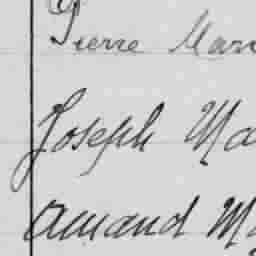 Pierre Mar
Joseph Ma
Amand Ma